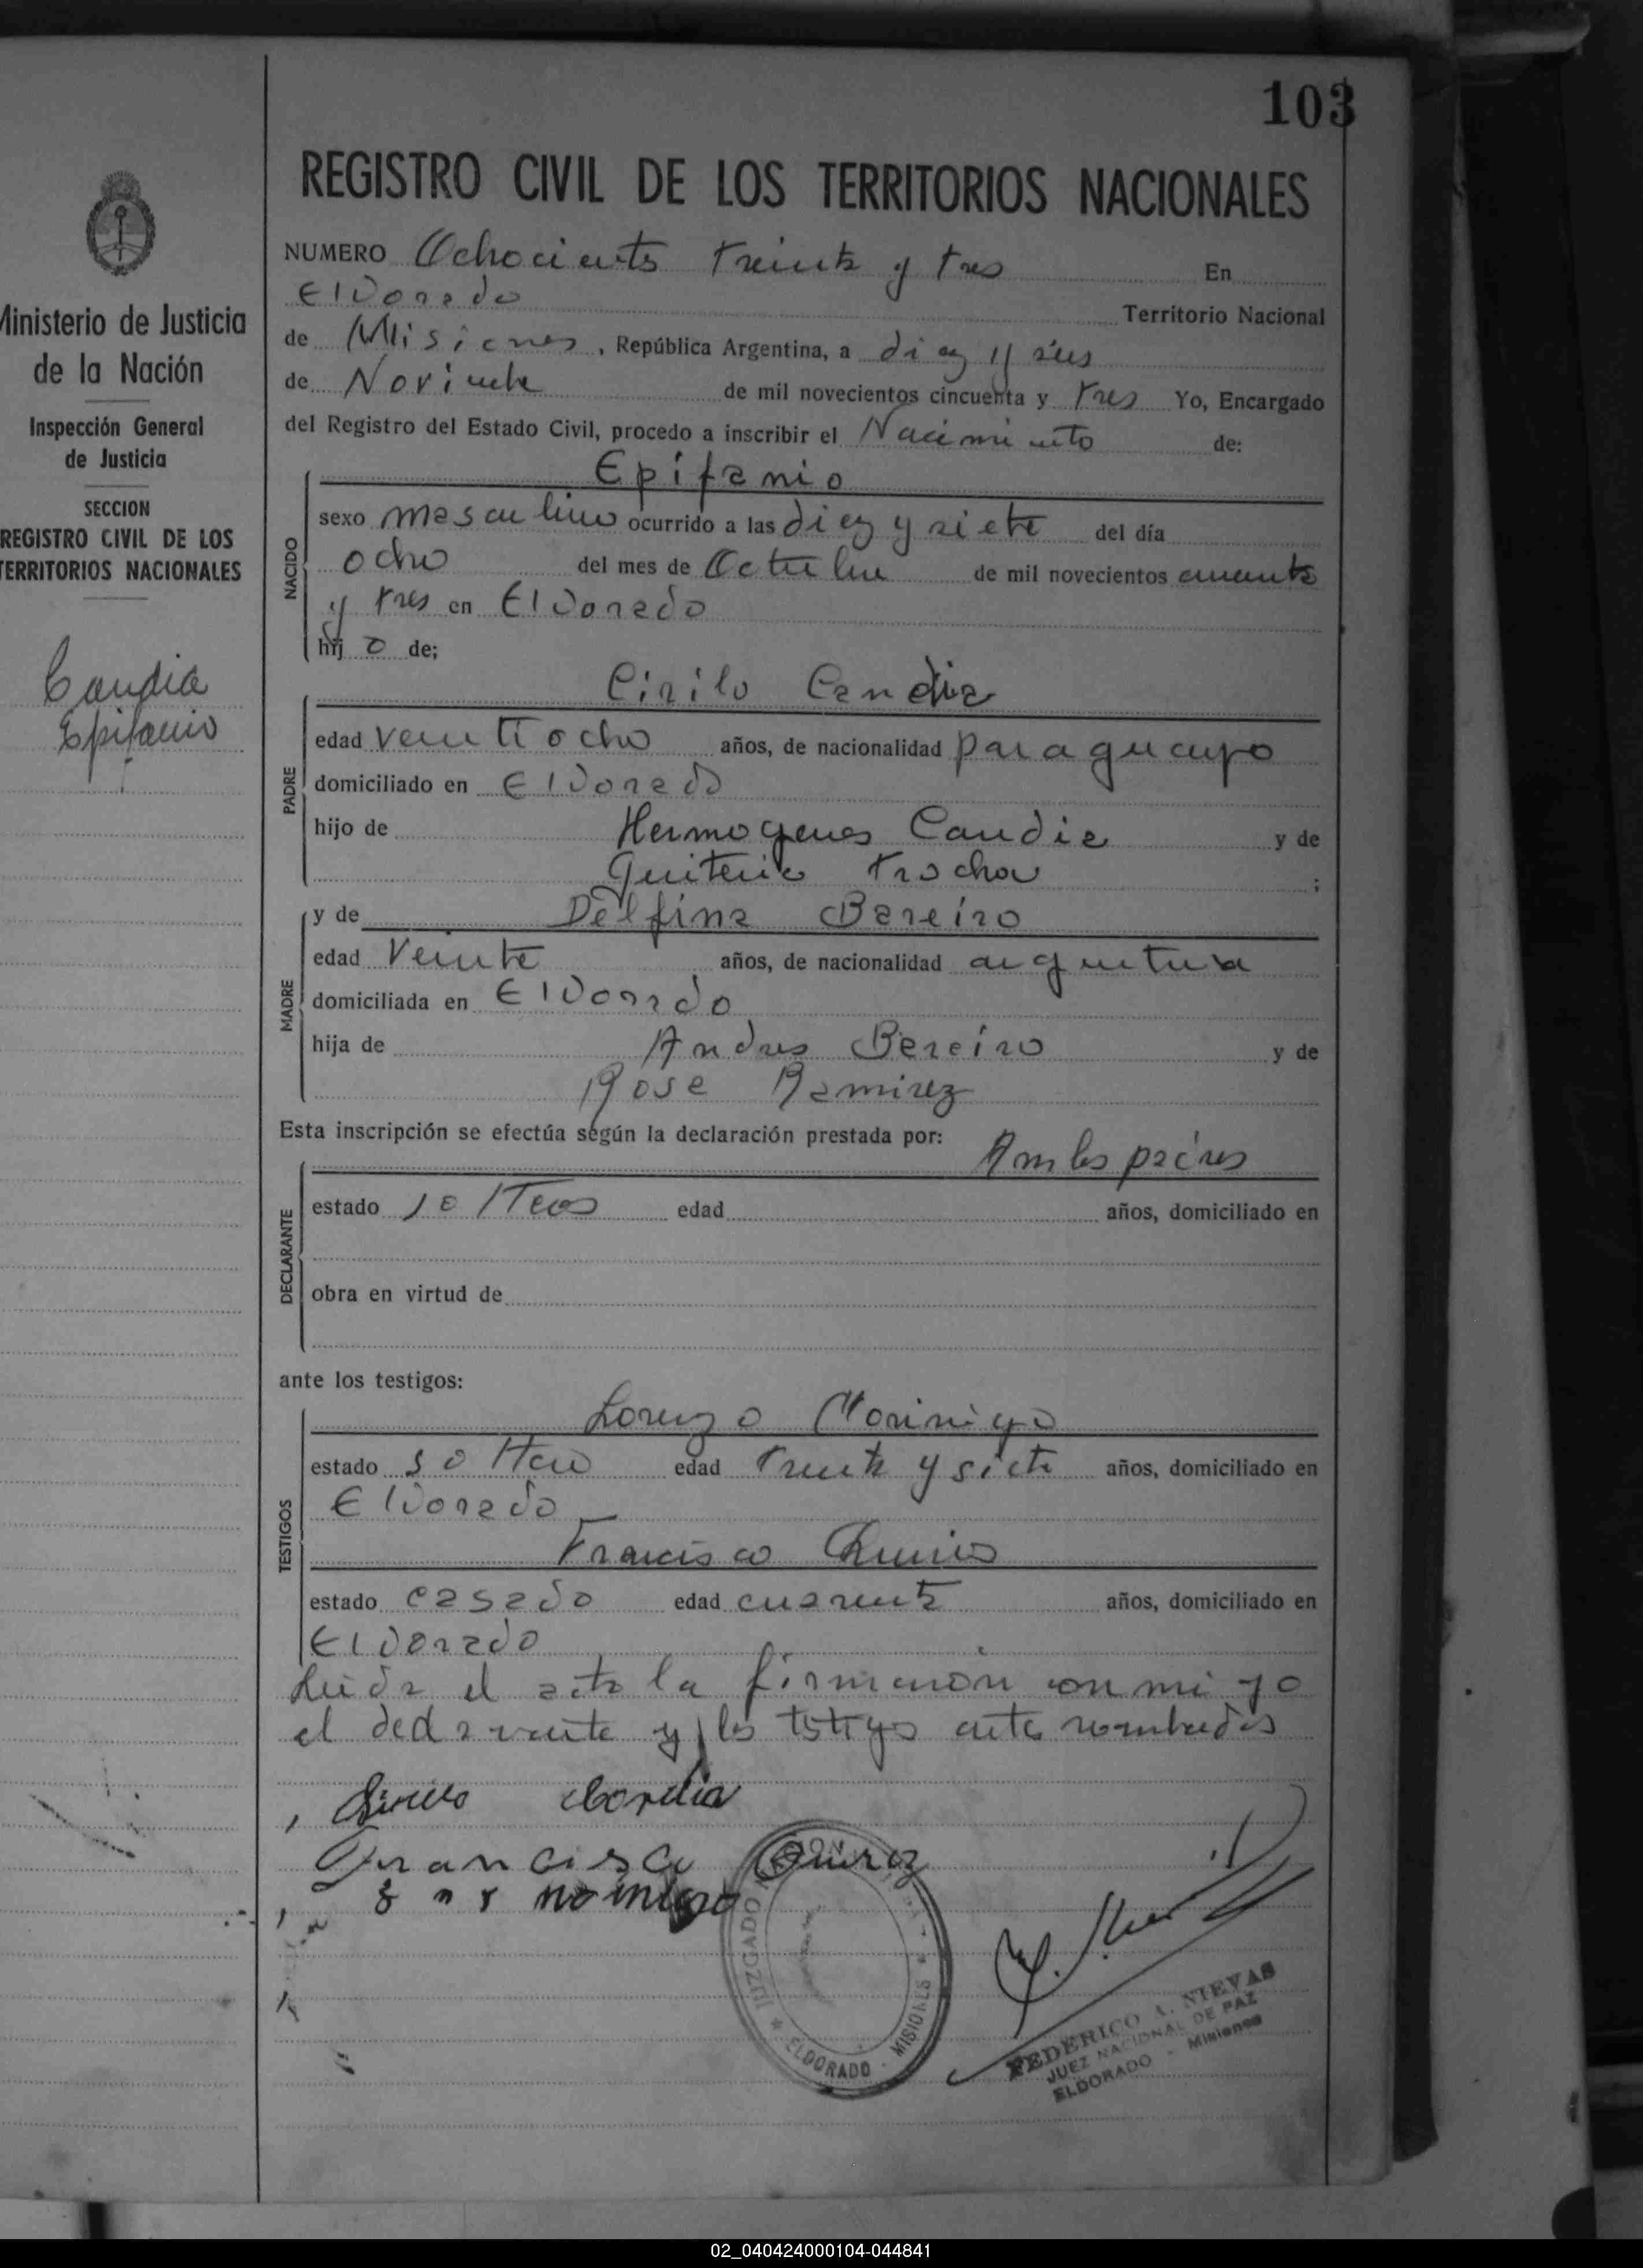 103
REGISTRO CIVIL DE LOS TERRITORIOS NACIONALES
Ministerio de Justicia
de la Nación
Inspección General
de Justicia
SECCION
REGISTRO CIVIL DE LOS
TERRITORIOS NACIONALES
Candia
Epifanio
NUMERO Ochociento treinta y tres En
ElDorado Territorio Nacional
de Misiones, República Argentina, a diez y seis
de Noviembre de mil novecientos cincuenta y tres Yo, Encargado
del Registro del Estado Civil, procedo a inscribir el Nacimiento de:
NACIDO
Epifanio
sexo masculino ocurrido a las diez y siete del día
ocho del mes de Octubre de mil novecientos
y tres en ElDorado
hij o de;
PADRE
Cirilo Candia
edad veintiocho años, de nacionalidad paraguayo
domiciliado en ElDorado
hijo de Hermogenes Candia y de
Quiteria Trocha ;
MADRE
y de Delfina Bareiro
edad Veinte años, de nacionalidad argentina
domiciliada en ElDorado
hija de Andres Bareiro y de
Rosa Ramirez
Esta inscripción se efectúa según la declaración prestada por:
DECLARANTE
Ambos padres
estado solteros edad años, domiciliado en
obra en virtud de
ante los testigos:
TESTIGOS
Lorenzo Morinigo
estado soltero edad treinta y siete años, domiciliado en
ElDorado
Francisco
estado casado edad cuarenta años, domiciliado en
ElDorado
Leida el acta la firmaron conmigo
el declarante y los testigos ante nombrados
Candia
Francisco
JUZGADO
ELDORADO - MISIONES
FEDERICO A. NIEVAS
JUEZ NACIONAL DE PAZ
ELDORADO - Misiones
02_040424000104-044841